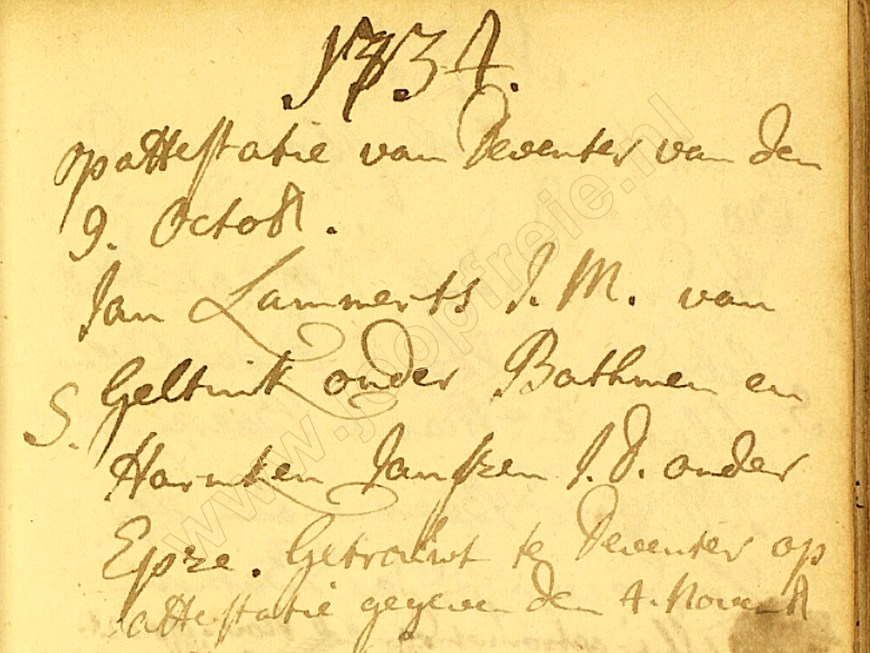 1734.
op attestatie van Deventer van den
9. Octobr.
Jan Lammerts J. M. van
S. Geltink onder Bathmen en
Harmken Janssen J. D. onder
Epze. Getrouwt te Deventer op
attestatie gegeven den 4. Novemb
www.joopfreie.nl